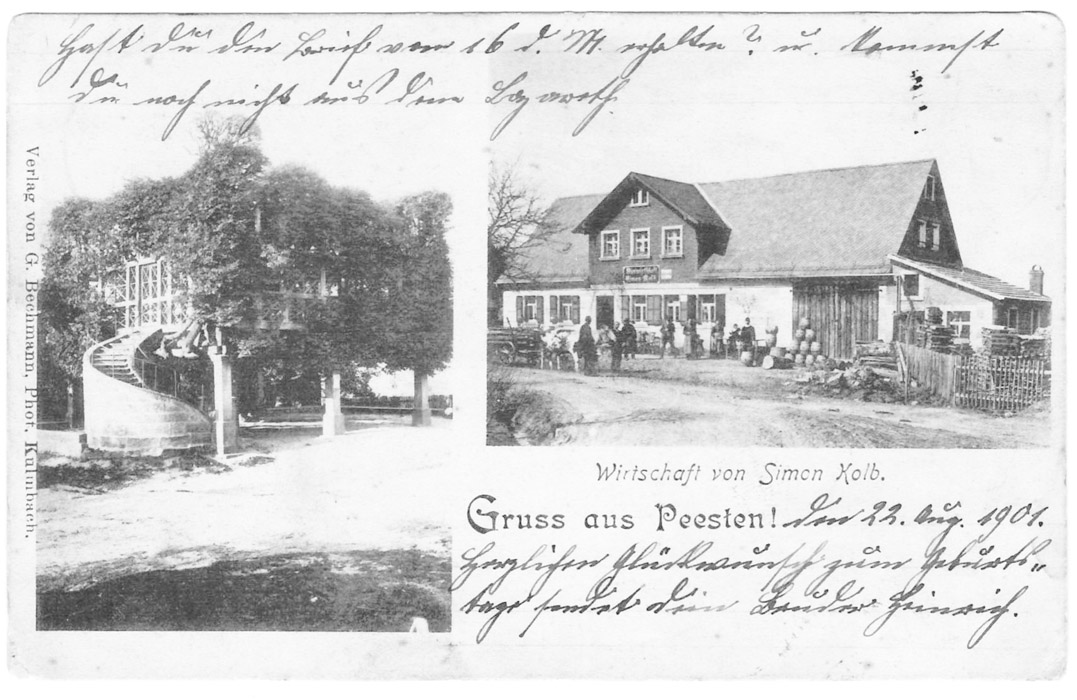 Hast du den Brief vom 16 d. M. erhalten? u. kommst
du noch nicht aus dem Lazareth.
Verlag von G. Bechmann, Phot. Kulmbach.
Simon Kolb
Wirtschaft von Simon Kolb.
Gruss aus Peesten! den 22. Aug. 1901.
Herzlichen Glückwunsch zum Geburts„
tage sendet dein Bruder Heinrich.